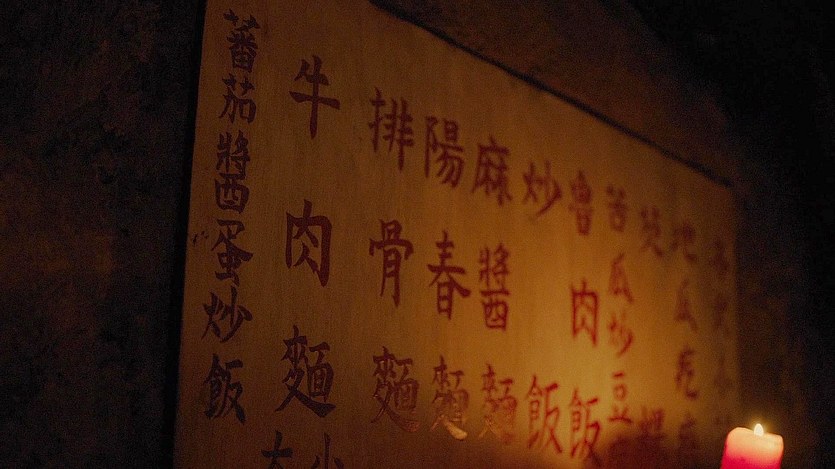 地瓜
苦瓜炒豆
魯肉飯
炒飯
麻醬麵
陽春麵
排骨麵
牛肉麵
小
大
蕃茄醬蛋炒飯